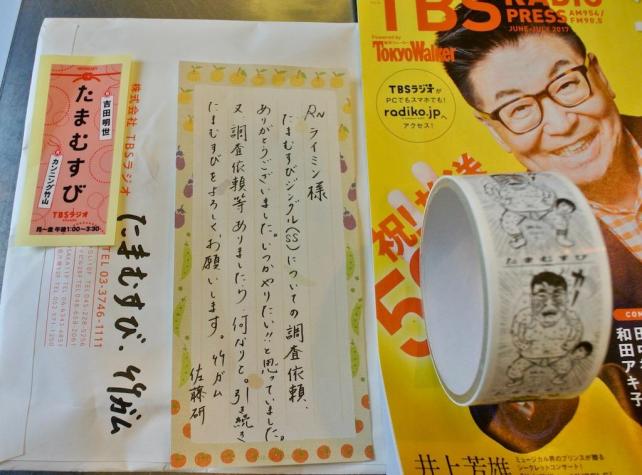 吉田明世
たまむすび
カンニング竹山
TBSラジオ
月〜金 午後1:00〜3:30
株式会社 TBSラジオ
TEL 03-3746-1111
たまむすび、竹ガム
RNライミン様
たまむすびジングル(SS)についての調査依頼、
ありがとうございました。いつかやりたい!!と思っていました。
又、調査依頼等ありましたら、何なりと。引き続き
たまむすびをよろしくお願いします。竹ガム
佐藤研
TBS RADIO
PRESS AM954/
FM90.5
JUNE-JULY 2017
Powered by
TokyoWalker
TBSラジオが
PCでもスマホでも!
radiko.jpへ
アクセス!
祝!
たまむすび
カー
和田アキ子
井上芳雄
ミュージカル界のプリンスが贈る
シークレットコンサート!